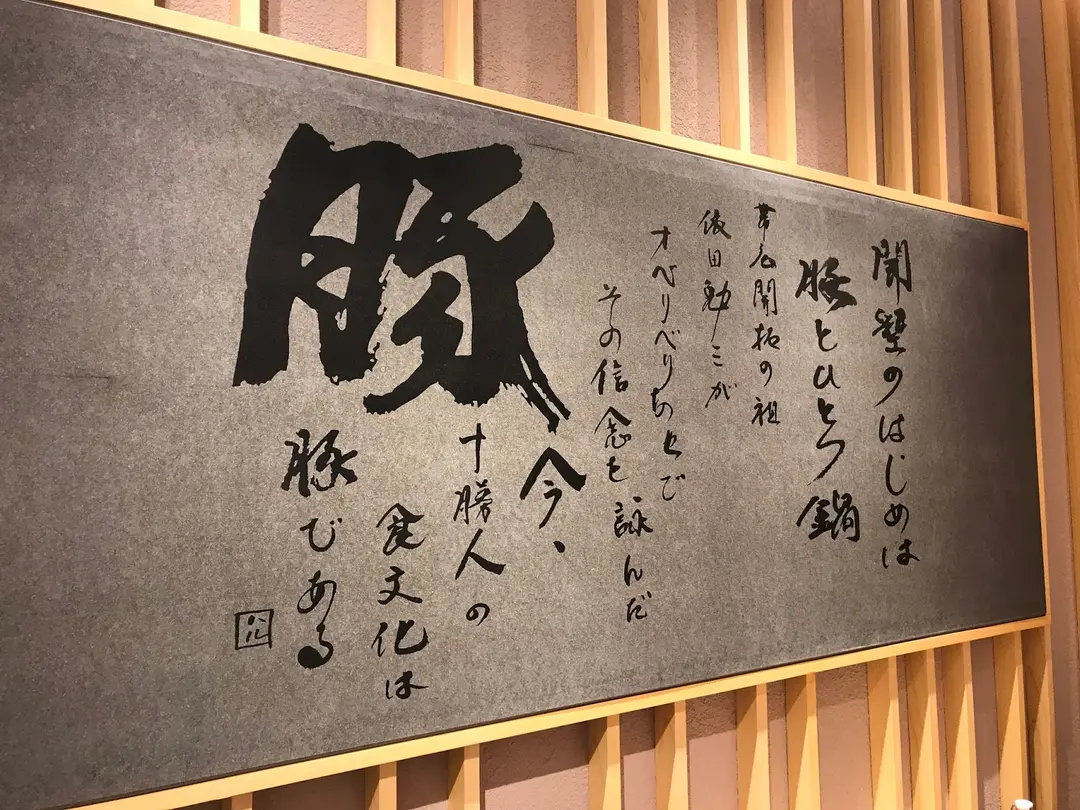 開墾のはじめは
豚とひとつ鍋
帯広開拓の祖
依田勉三が
オベリベリの地で
その信念を詠んだ
豚
今、
十勝人の
食文化は
豚である
ハル